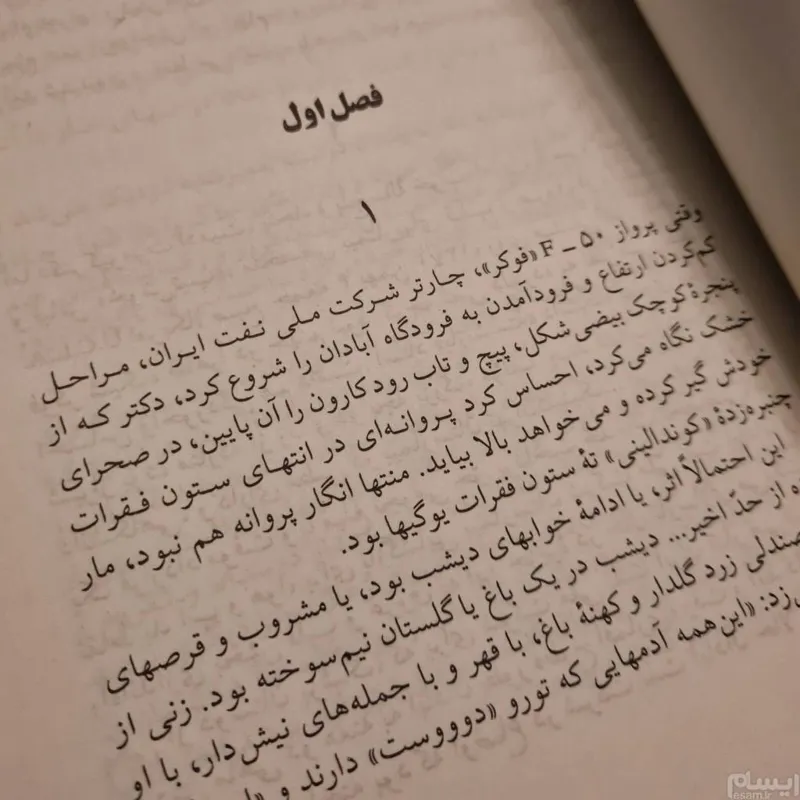 فصل اول
۱
وقتی پرواز F ـ ۵۰ «فوکر»، چارتر شرکت ملی نفت ایران، مراحل
کم‌کردن ارتفاع و فرودآمدن به فرودگاه آبادان را شروع کرد، دکتر که از
پنجرهٔ کوچک بیضی شکل، پیچ و تاب رود کارون را آن پایین، در صحرای
خشک نگاه می‌کرد، احساس کرد پروانه‌ای در انتهای ستون فقرات
خودش گیر کرده و می‌خواهد بالا بیاید. منتها انگار پروانه هم نبود، مار
چنبره‌زدهٔ «کوندالینی» تهٔ ستون فقرات یوگیها بود.
این احتمالاً اثر، یا ادامهٔ خوابهای دیشب بود، یا مشروب و قرصهای
از حدّ اخیر... دیشب در یک باغ یا گلستان نیم‌سوخته بود. زنی از
صندلی زرد گلدار و کهنهٔ باغ، با قهر و با جمله‌های نیش‌دار، با او
«این‌همه آدمهایی که تورو «دوووست» دارند و
ایسام
esam.ir